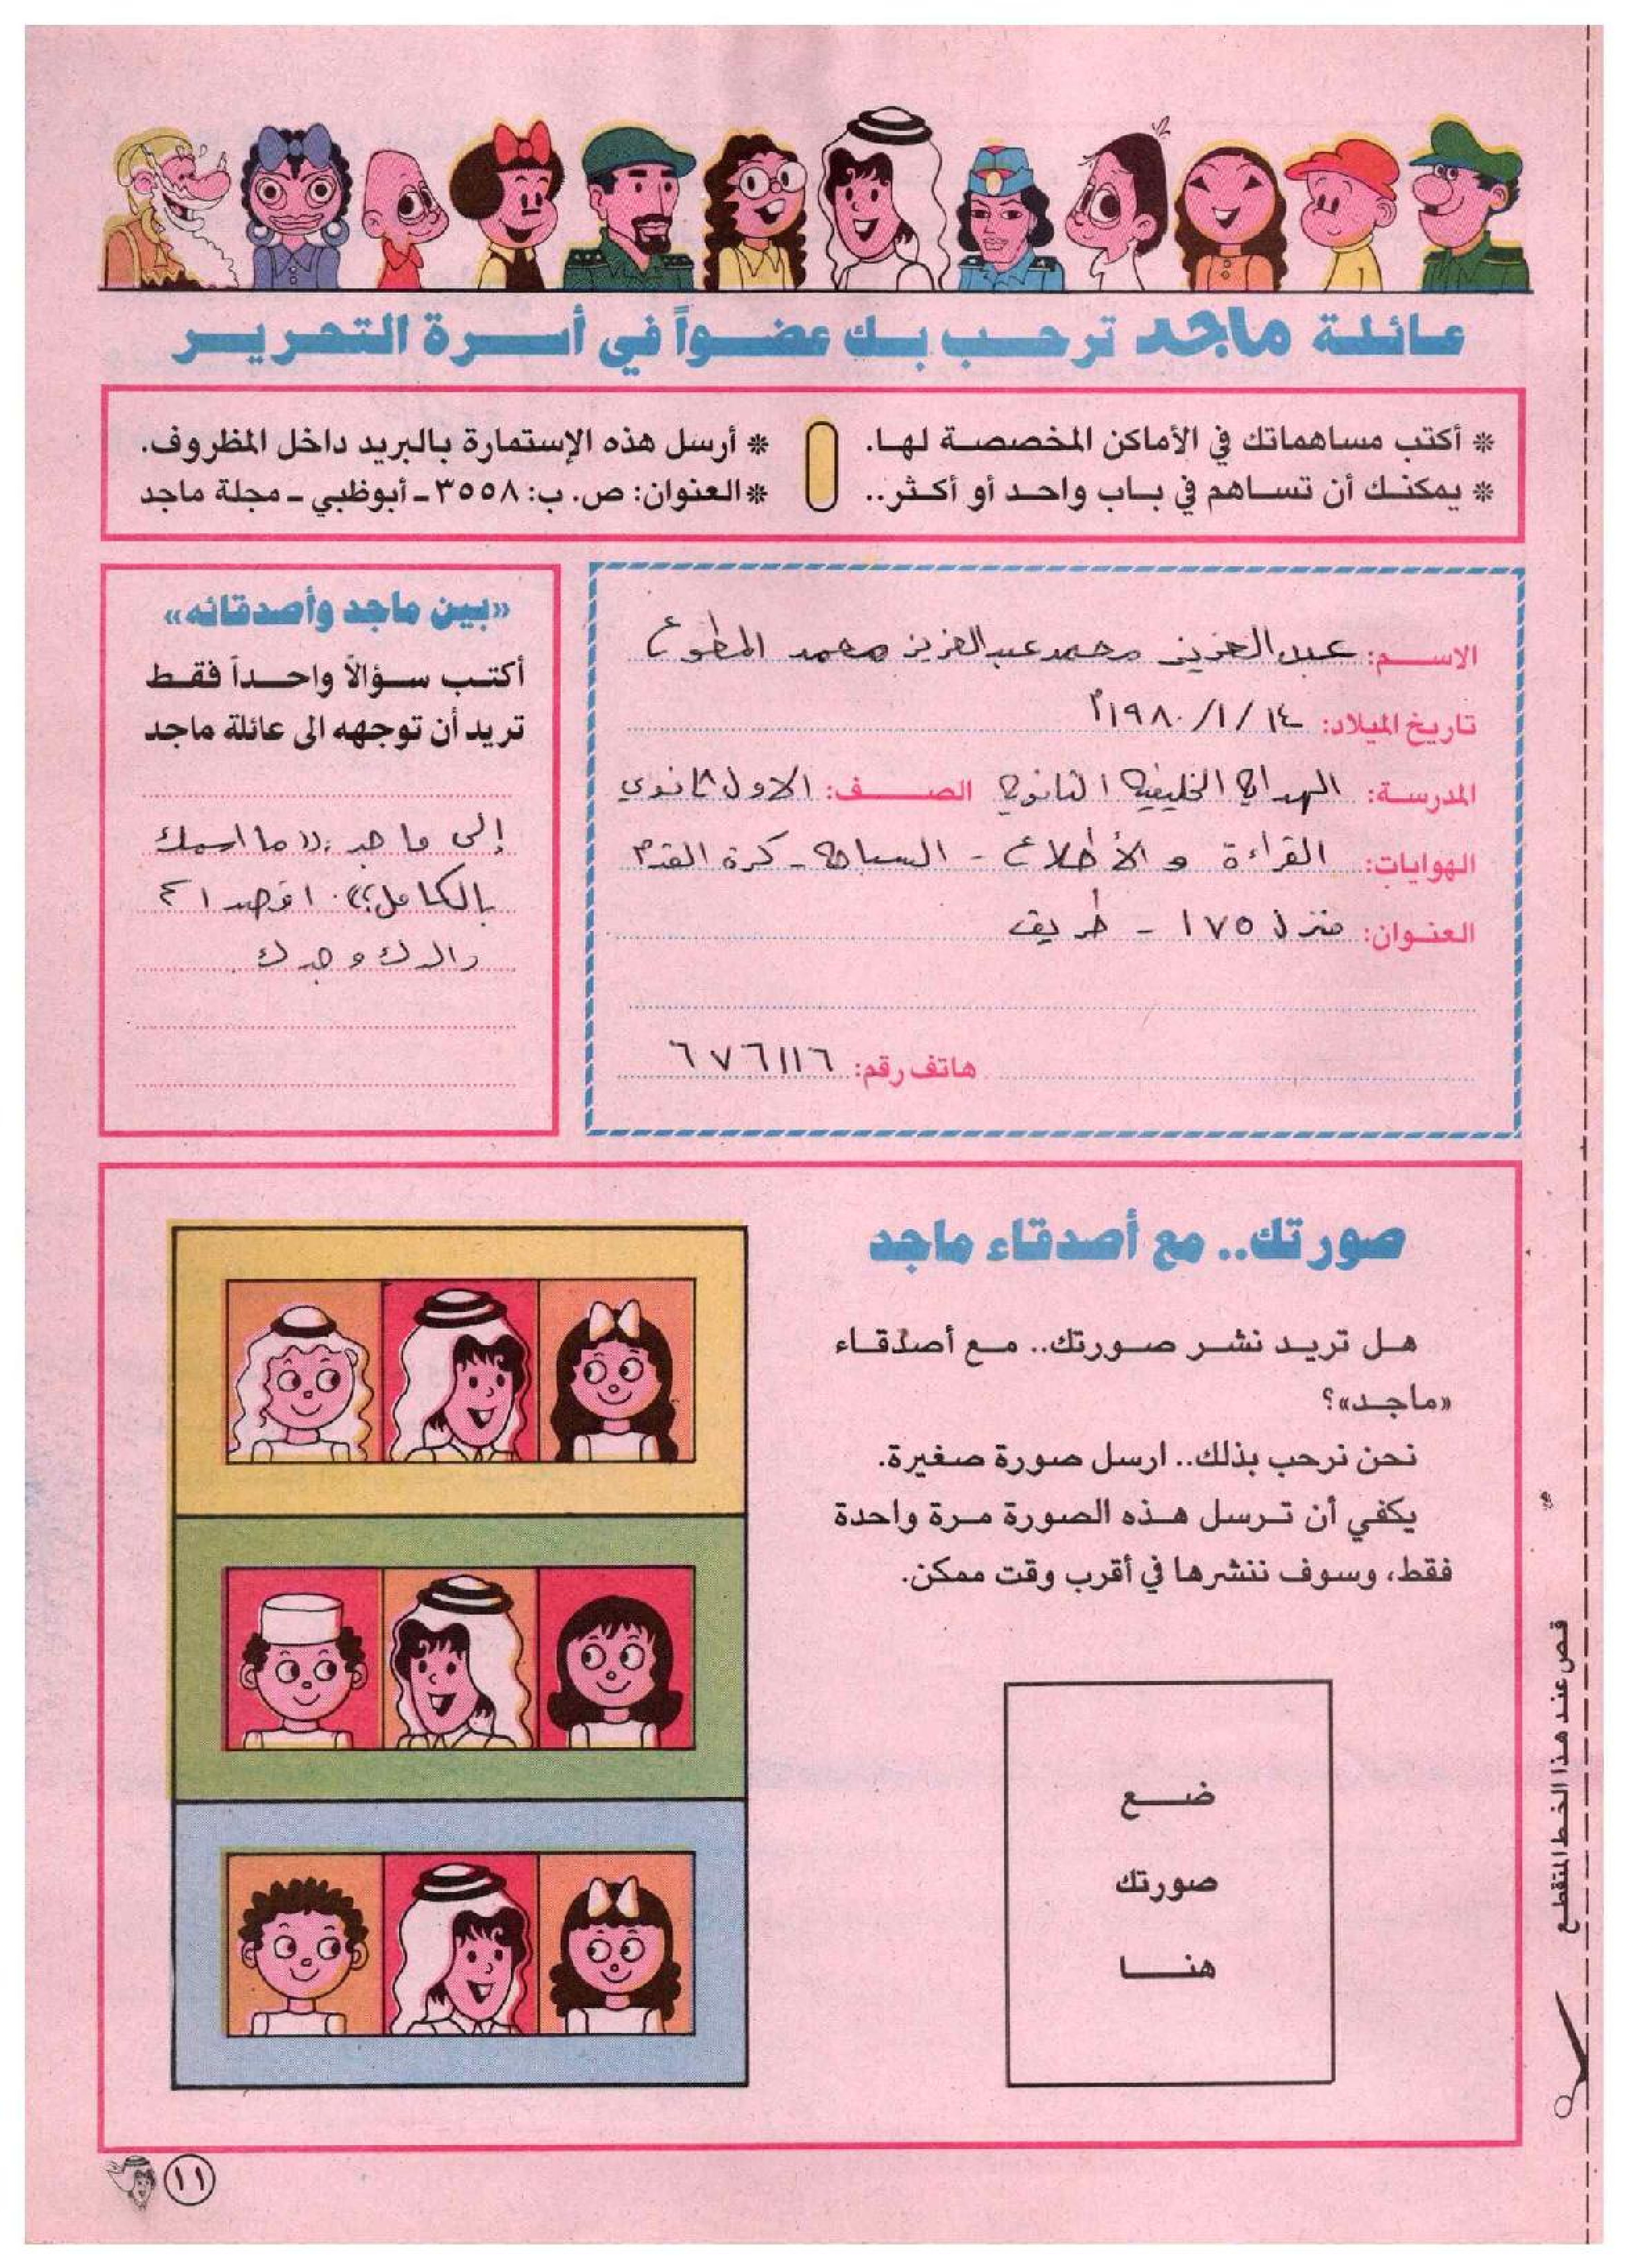 عائلة ماجد ترحب بك عضواً في أسرة التحرير
* أكتب مساهماتك في الأماكن المخصصة لها.
* يمكنك أن تساهم في باب واحد أو أكثر..
* أرسل هذه الإستمارة بالبريد داخل المظروف.
* العنوان: ص. ب: ٣٥٥٨ - أبوظبي - مجلة ماجد
الاسم: عبدالعزيز محمد عبدالعزيز محمد المطوع
تاريخ الميلاد: ١٤ / ١ / ١٩٨٠م
المدرسة: الهداية الخليفية الثانوية الصف: الاول ثانوي
الهوايات: القراءة و الأطلاع - السباحة - كرة القدم
العنوان: منزل ١٧٥ - طريق
هاتف رقم: ٦٧٦١١٦
«بين ماجد وأصدقائه»
أكتب سؤالاً واحداً فقط
تريد أن توجهه الى عائلة ماجد
إلى ماجد: «ما اسمك
بالكامل؟؟». اقصد ا
والدك وجدك
صورتك.. مع أصدقاء ماجد
هل تريد نشر صورتك.. مع أصدقاء
«ماجد»؟
نحن نرحب بذلك.. ارسل صورة صغيرة.
يكفي أن ترسل هذه الصورة مرة واحدة
فقط، وسوف ننشرها في أقرب وقت ممكن.
ضع
صورتك
هنا
قص عند هذا الخط المتقطع
١١